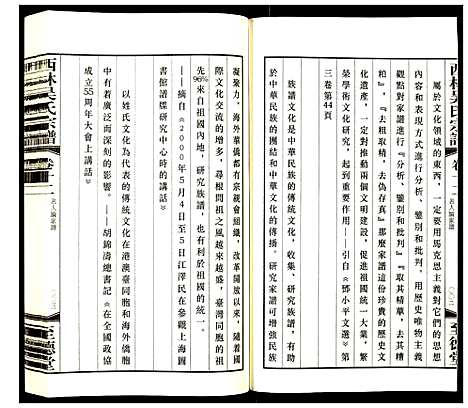 西林吳氏宗譜
卷十二
名人論家譜
至德堂
屬於文化領域的東西，一定要用馬克思主義對它們的思想
內容和表現方式進行分析、鑒別和批判，用歷史唯物主義
觀點對家譜進行『分析、鑒別和批判』『取其精華，去其糟
粕』，『去粗取精，去偽存真』那麼家譜這份珍貴的歷史文
化遺產，一定對推動兩個文明建設，促進祖國統一大業，繁
榮學術文化研究，起到重要作用——引自《鄧小平文選》第
三卷第44頁
族譜文化是中華民族的傳統文化，收集、研究族譜，有助
於中華民族的團結和中華文化的傳播。研究家譜可增強民族
凝聚力，海外華僑都有宗親會組織，改革開放以來，隨着國
際文化交流的增多，尋根問祖之風越來越盛，臺灣同胞的祖
先96%來自祖國內地，研究族譜，也有利於祖國的統一。
——摘自《2000年5月4日至5日江澤民在參觀上海圖
書館譜牒研究中心時的講話》
以姓氏文化為代表的傳統文化在港澳臺同胞和海外僑胞
中有着廣泛而深刻的影響。——胡錦濤總書記《在全國政協
成立55周年大會上講話》
西林吳氏宗譜
卷十二
名人論家譜
至德堂